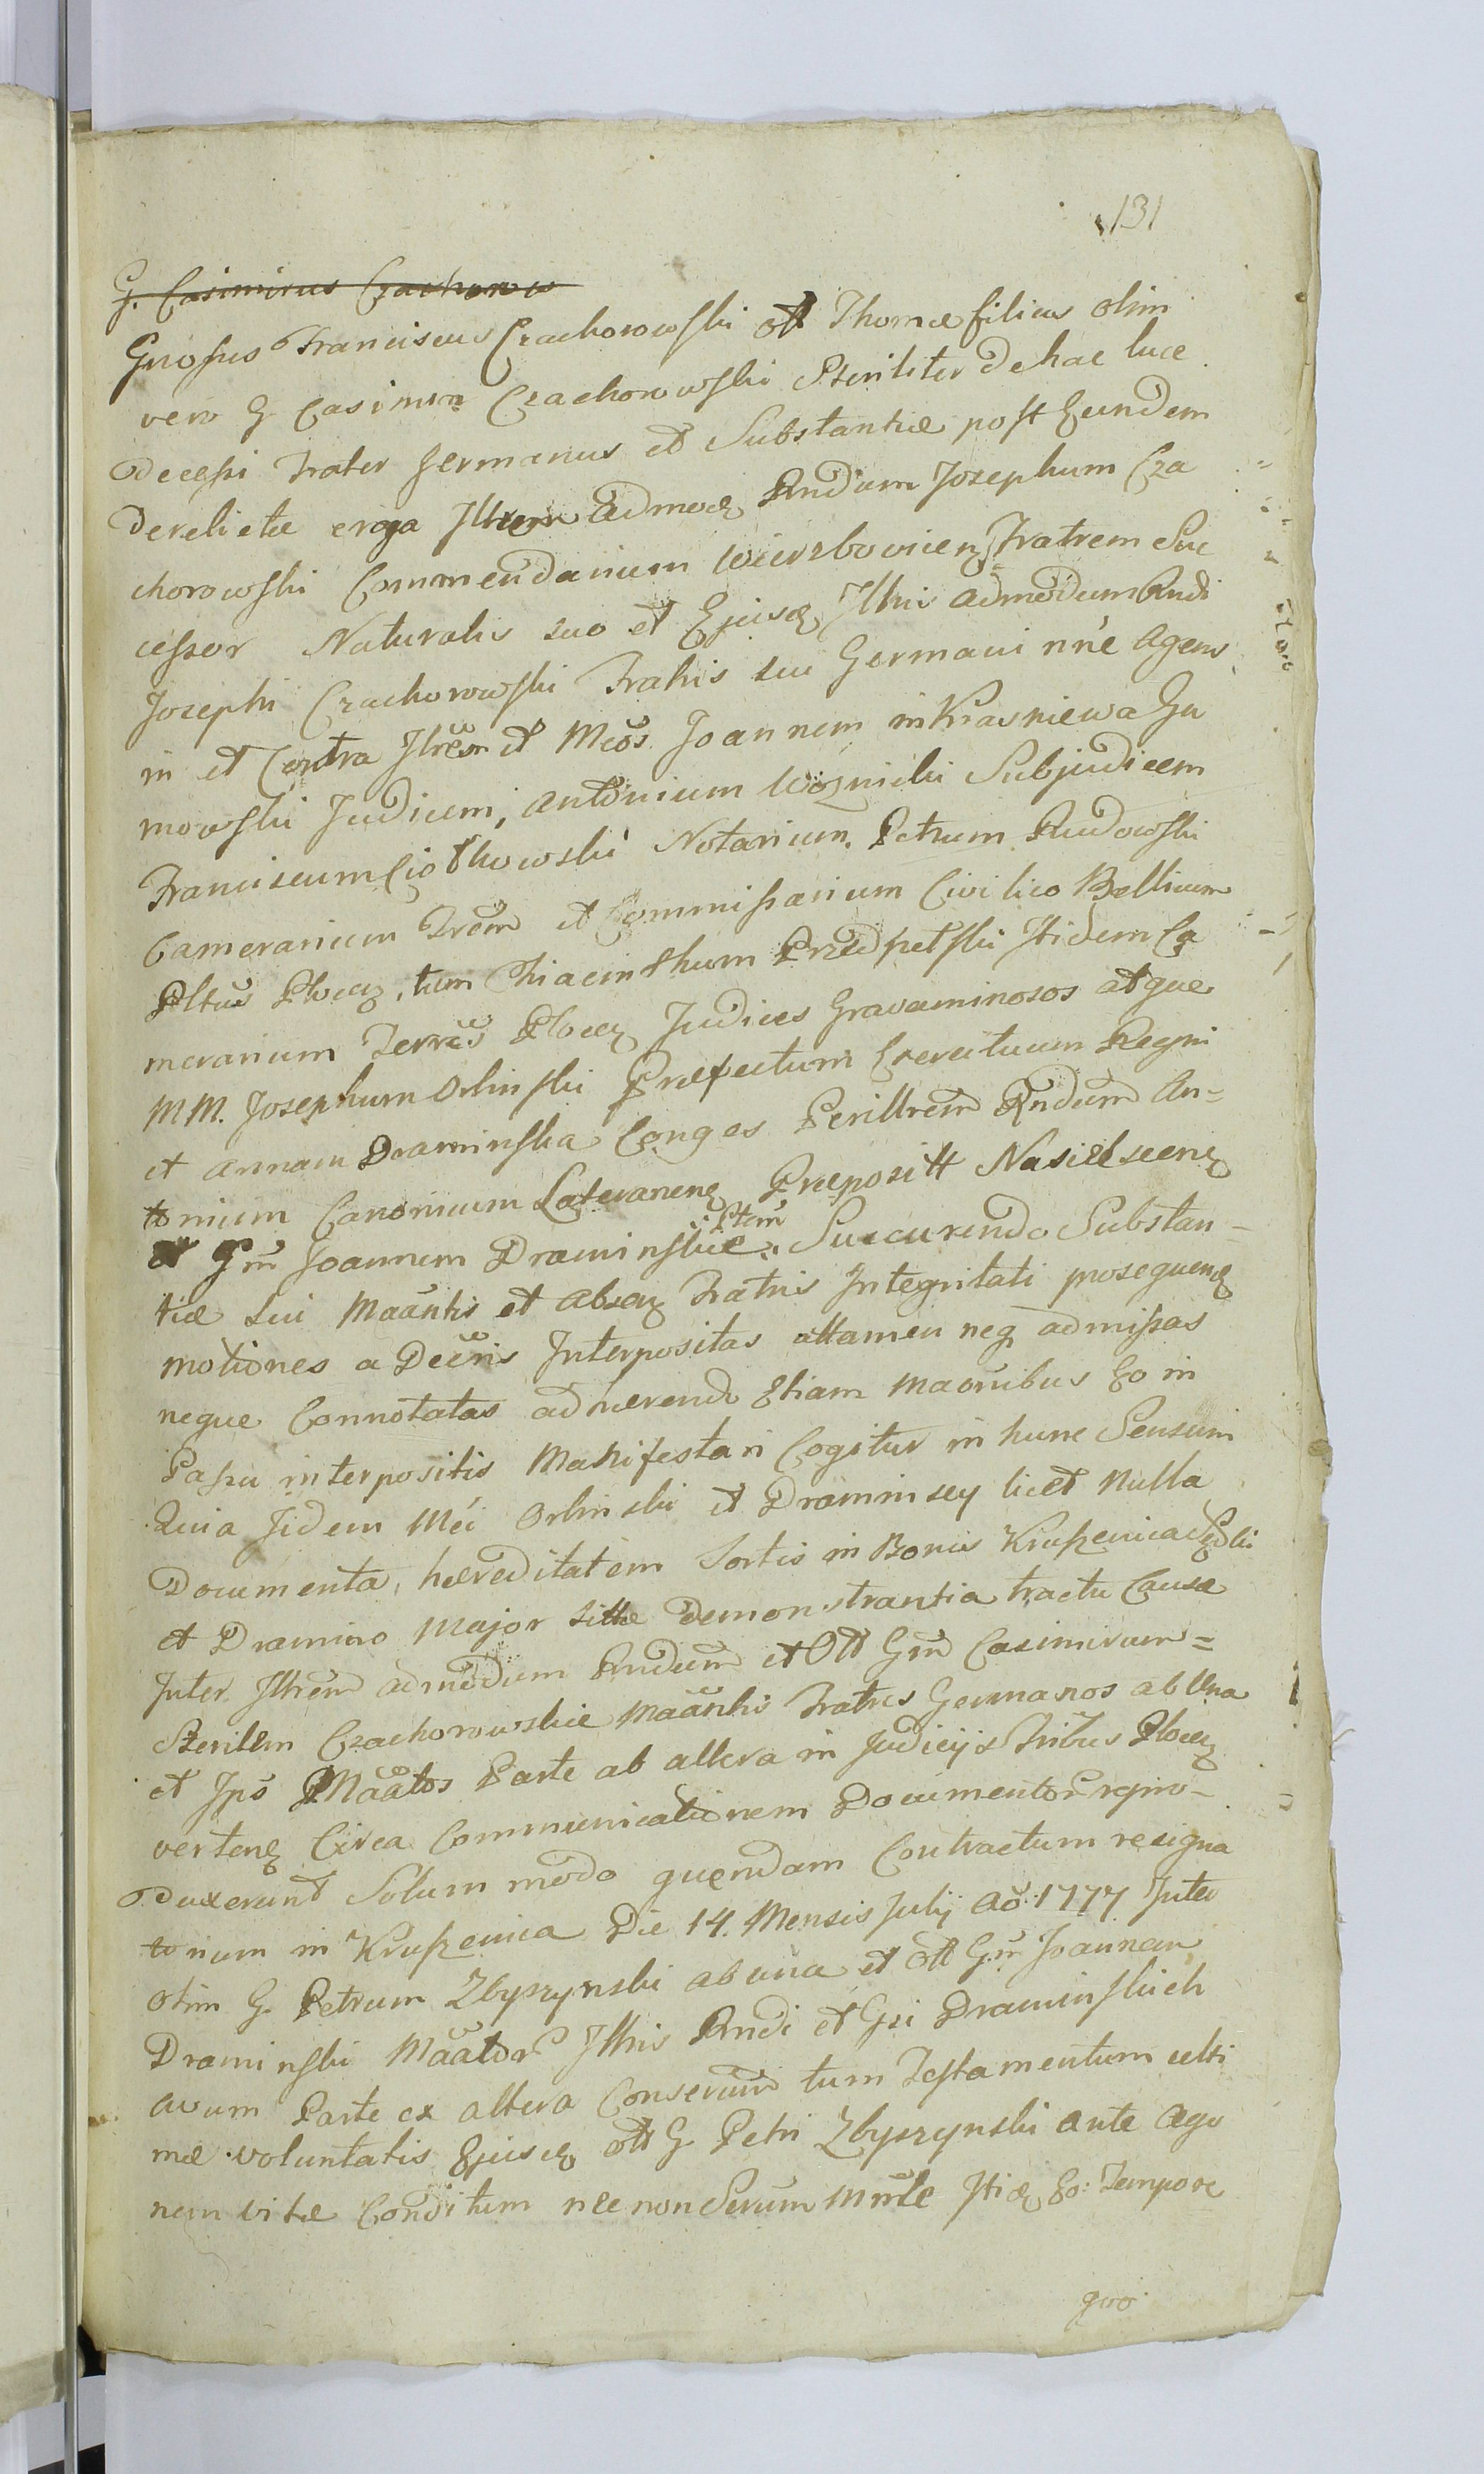 131
G. Casimirus Czachorow
Gnosus Franciscus Czachorowski ott Thomæ filius olim
vero G Casimiri Czachorowski Steriliter de hac luce
decessi Frater germanus et Substantiæ post Eundem
derelictæ erga Illrem admodq Rndum Josephum Cza
chorowski Commendarium Wierzbovicenq Fratrem Suc
cessor Naturalis suo et Ejusdq Illris admodum Rndi
Josephi Czachorowski Fratris sui Germani nñe agens
in et Contra Illres et Mcos Joannem in Krasniewa Gu
mowski Judicem, Antonium Woznicki Subjudicem
Franciscum Ciotkowski Notarium, Petrum Rudowski
Camerarium Trem et Commissarium Civilico Bellicum
Pltus Plocenq, tum Hiacinthum Przedpelski Itidem Ca
merarium Terrēs Plocenq Judices Gravaminosos atque
MM. Josephum Orlinski Præfectum Exercituum Regni
et Annam Draminska Conges Perillrem Rndum An=
tonium Canonicum Lateranenq Præpositt Nasielscenq
et Gm Joannem Draminskie Ptem Succurendo Substan-
tiæ sui Maantis et absenq Fratris Integritati prosequenq
motiones a Decris Interpositas attamen neq admissas
neque Connotatas adhærendo Etiam Maonibus Eo in
Passu interpositis Manifestari Cogitur in hunc Sensum
Quia Iidem Mci Orlinski et Draminscy licet Nulla
Documenta, hæreditatem Sortis in Bonis Kruszenica
et Dramino Major sittæ demonstrantia tractu Causæ
Inter Illrem admodum Rndum et Ott Gm Casimirum=
Sterilem Czachorowskie Maantis Fratres Germanos ab Una
et Ips Maatos Parte ab altera in Judicijs Plocenq
vertenq Circa Communicationem Documentor repro-
duxerunt Solum modo quendam Contractum resigna
torium in Kruszenica Die 14. Mensis Julij Ao: 1777 Inter
olim G. Petrum Zbyszynski ab una et ott Gm Joannem
Draminski Maator Illris Rndi et Gsi Draminskich
avum Parte ex altera Conserum tum Testamentum ulti
mæ voluntatis Ejusdq ott G. Petri Zbyszynski ante ago
nem vitæ Conditum nec non Serum Itidq Eo: Tempore
quo